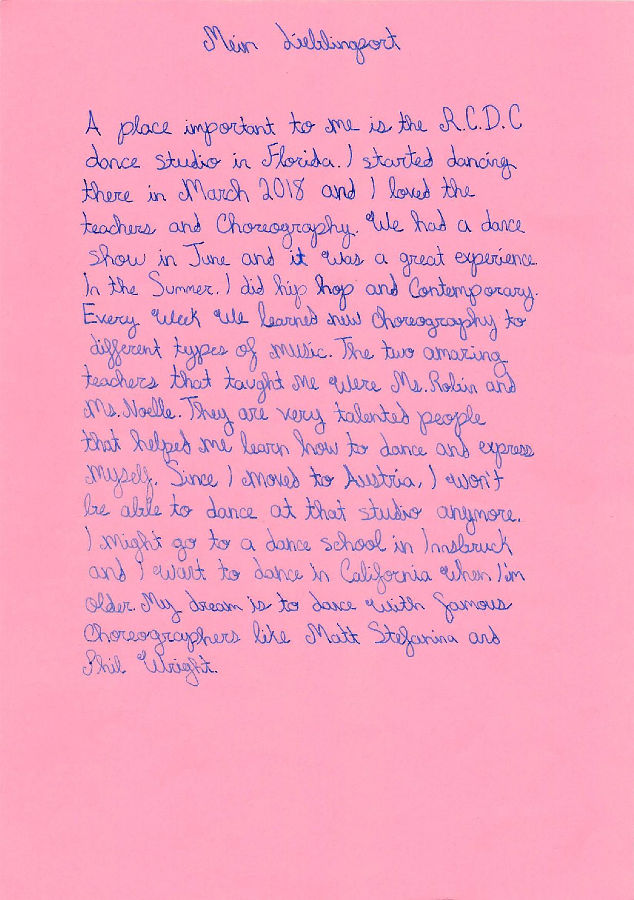 Mein Lieblingsort
A place important to me is the R.C.D.C
dance studio in Florida. I started dancing
there in March 2018 and I loved the
teachers and Choreography. We had a dance
show in June and it was a great experience.
In the Summer. I did hip hop and Contemporary.
Every Week We learned new Choreography to
different types of music. The two amazing
teachers that taught me were Ms. Robin and
Ms. Noelle. They are very talented people
that helped me learn how to dance and express
myself. Since I moved to Austria, I won't
be able to dance at that studio anymore.
I might go to a dance school in Innsbruck
and I want to dance in California when I'm
older. My dream is to dance with famous
Choreographers like Matt Stefanina and
Phil Wright.